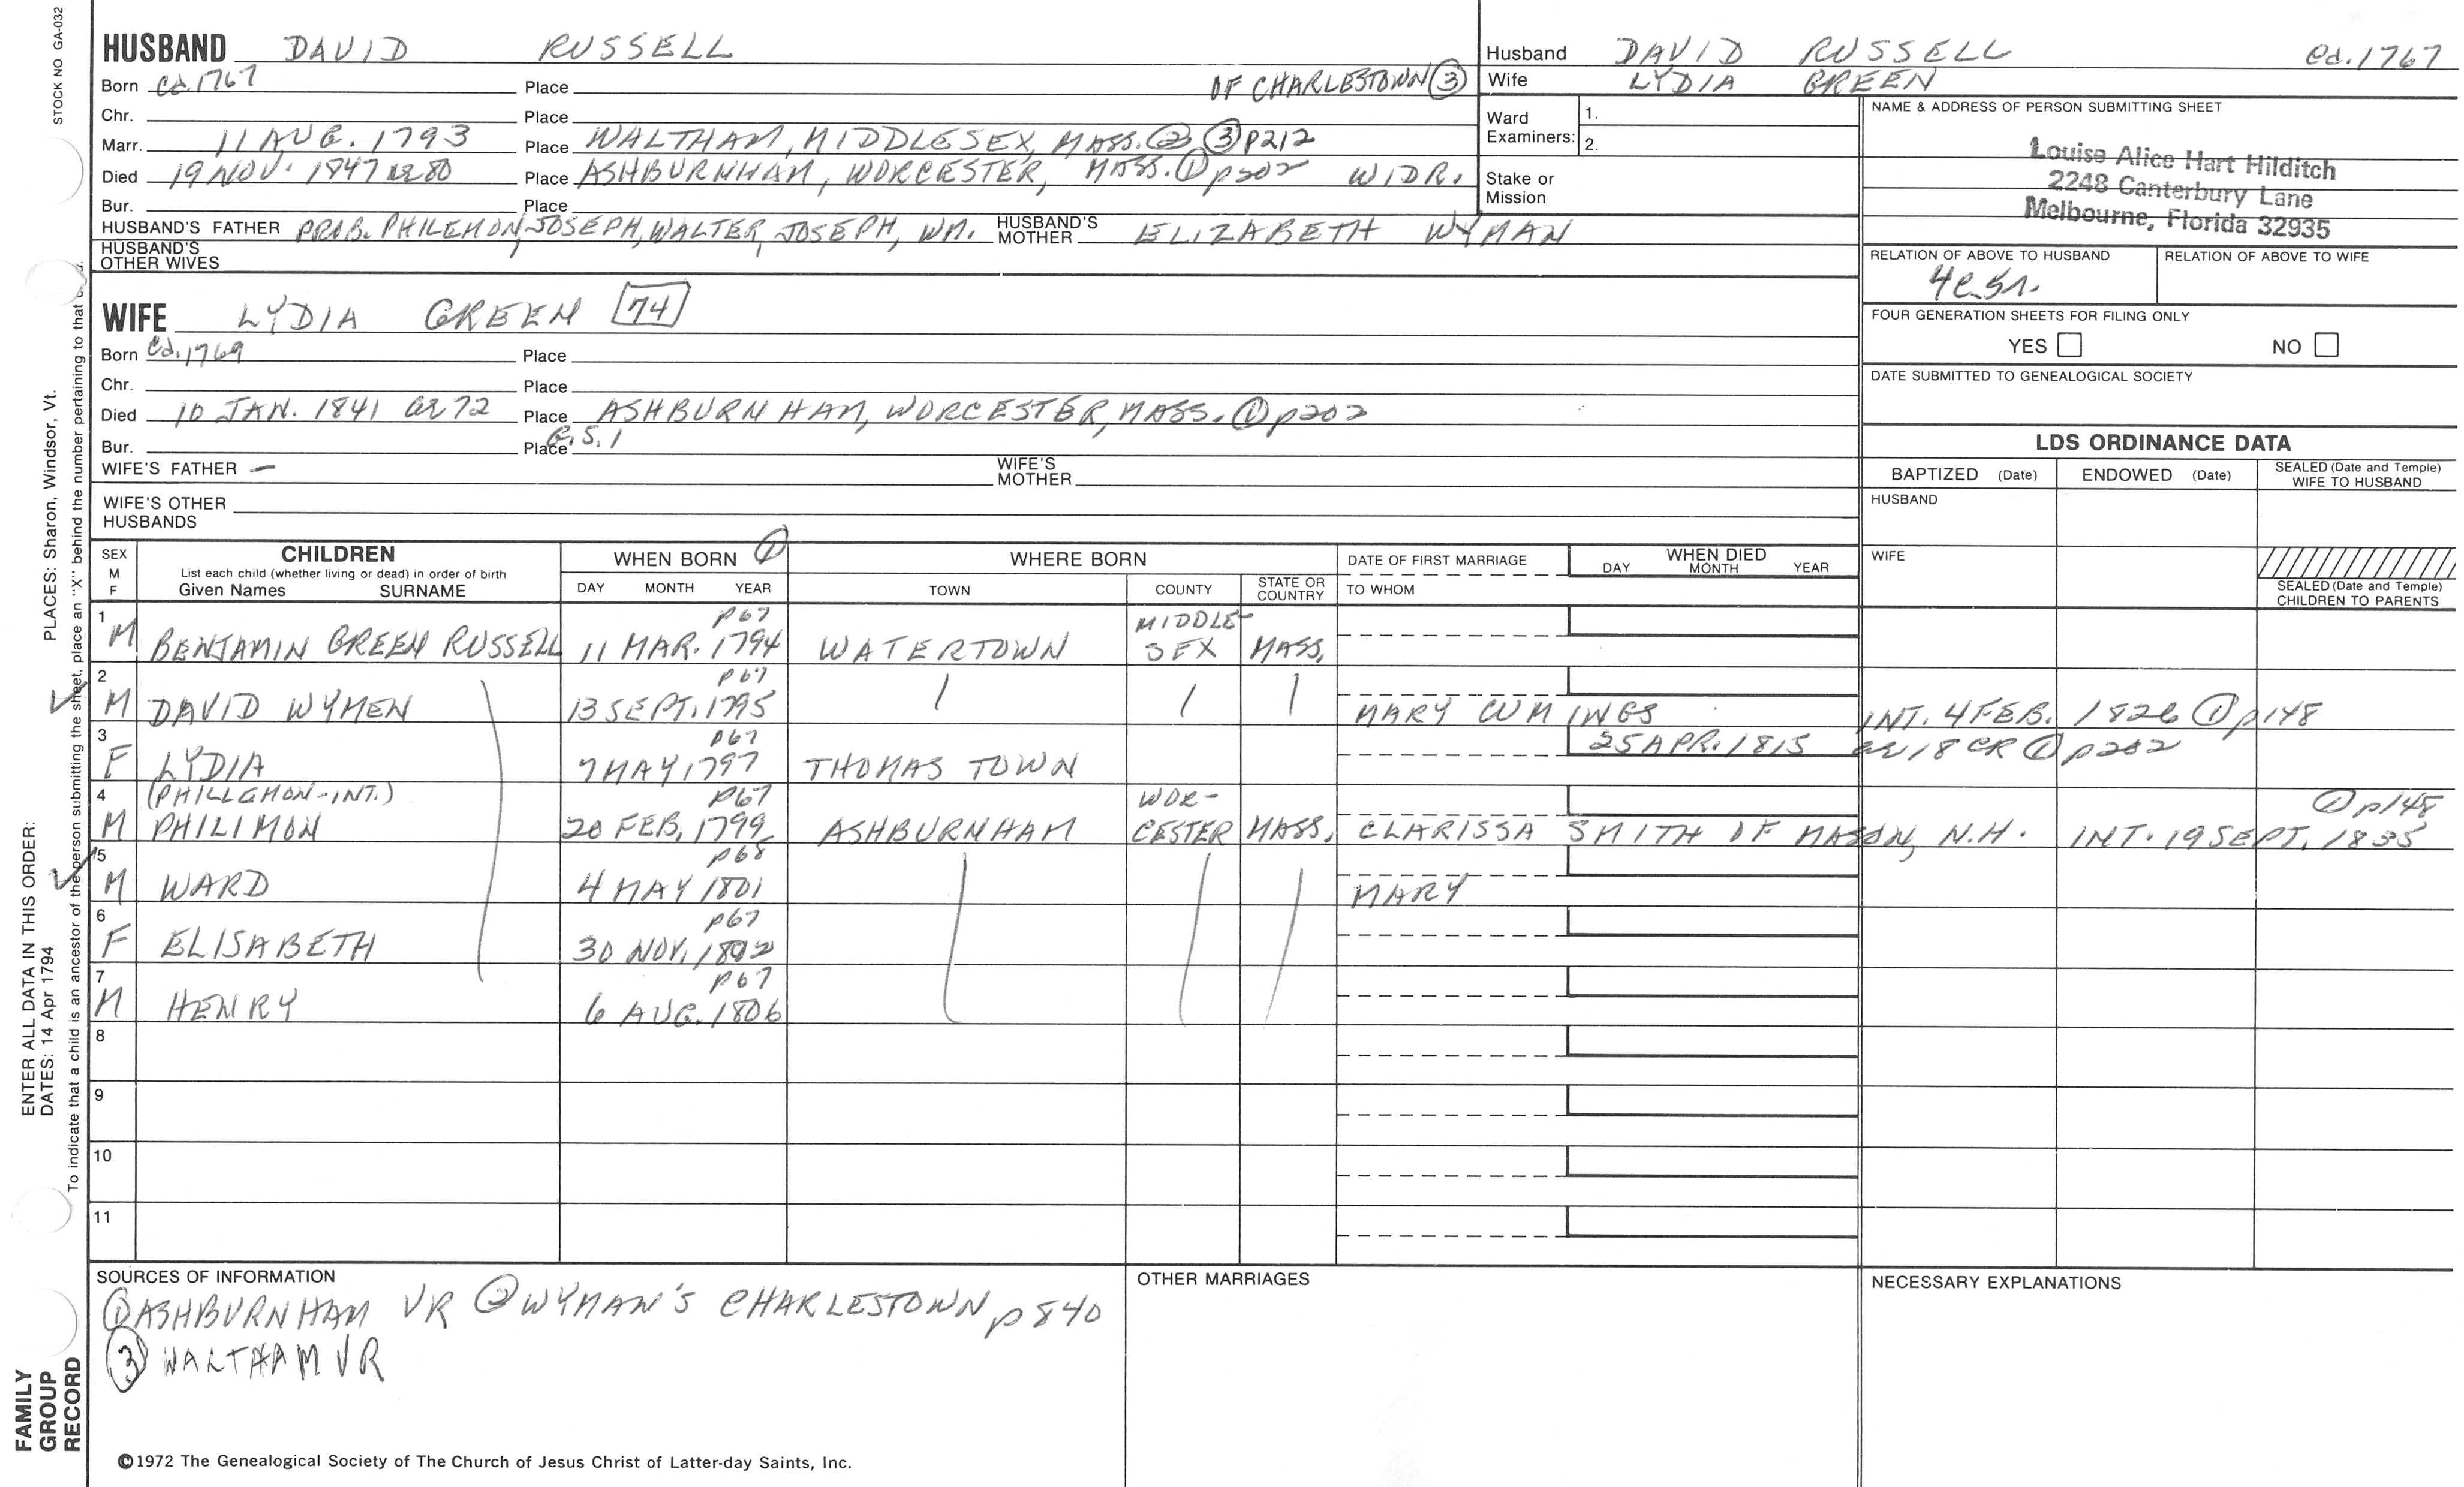 STOCK NO GA-032
HUSBAND DAVID RUSSELL
Born Ca. 1767 Place OF CHARLESTOWN ③
Chr. Place
Marr. 11 AUG. 1793 Place WALTHAM, MIDDLESEX, MASS. ② ③ p212
Died 19 NOV. 1847 ae 80 Place ASHBURNHAM, WORCESTER, MASS. ① p202 WIDR.
Bur. Place
HUSBAND'S FATHER PROB. PHILEMON, JOSEPH, WALTER, JOSEPH, WM. HUSBAND'S MOTHER ELIZABETH WYMAN
HUSBAND'S OTHER WIVES
WIFE LYDIA GREEN 74
Born Ca. 1769 Place
Chr. Place
Died 10 JAN. 1841 ae 72 Place ASHBURNHAM, WORCESTER, MASS. ① p202
Bur. Place G.S.1
WIFE'S FATHER — WIFE'S MOTHER
WIFE'S OTHER HUSBANDS
Husband DAVID RUSSELL Ca. 1767
Wife LYDIA GREEN
Ward Examiners: 1.
2.
Stake or Mission
NAME & ADDRESS OF PERSON SUBMITTING SHEET
Louise Alice Hart Hilditch
2248 Canterbury Lane
Melbourne, Florida 32935
RELATION OF ABOVE TO HUSBAND RELATION OF ABOVE TO WIFE
FOUR GENERATION SHEETS FOR FILING ONLY
YES NO
DATE SUBMITTED TO GENEALOGICAL SOCIETY
LDS ORDINANCE DATA
BAPTIZED (Date) ENDOWED (Date) SEALED (Date and Temple) WIFE TO HUSBAND
HUSBAND
WIFE
SEALED (Date and Temple) CHILDREN TO PARENTS
SEX M F CHILDREN WHEN BORN ① WHERE BORN DATE OF FIRST MARRIAGE WHEN DIED
List each child (whether living or dead) in order of birth
Given Names SURNAME DAY MONTH YEAR TOWN COUNTY STATE OR COUNTRY TO WHOM DAY MONTH YEAR
1 p67 MIDDLE-
M BENJAMIN GREEN RUSSELL 11 MAR. 1794 WATERTOWN SEX MASS.
2 p67
M DAVID WYMEN 13 SEPT. 1795 MARY CUMINGS INT. 4 FEB. 1826 ① p148
3 p67 25 APR. 1815 ae 18 CR ① p202
F LYDIA 7 MAY 1797 THOMAS TOWN
4 (PHILLEMON-INT.) p67 WOR- ① p148
M PHILIMON 20 FEB. 1799 ASHBURNHAM CESTER MASS. CLARISSA SMITH OF MASON, N.H. INT. 19 SEPT. 1835
5 p68
M WARD 4 MAY 1801 MARY
6 p67
F ELISABETH 30 NOV. 1802
7 p67
M HENRY 6 AUG. 1806
8
9
10
11
SOURCES OF INFORMATION
① ASHBURNHAM VR ② WYMAN'S CHARLESTOWN p 840
③ WALTHAM VR
OTHER MARRIAGES
NECESSARY EXPLANATIONS
©1972 The Genealogical Society of The Church of Jesus Christ of Latter-day Saints, Inc.
FAMILY GROUP RECORD
ENTER ALL DATA IN THIS ORDER:
DATES: 14 Apr 1794 PLACES: Sharon, Windsor, Vt.
To indicate that a child is an ancestor of the person submitting the sheet, place an "X" behind the number pertaining to that